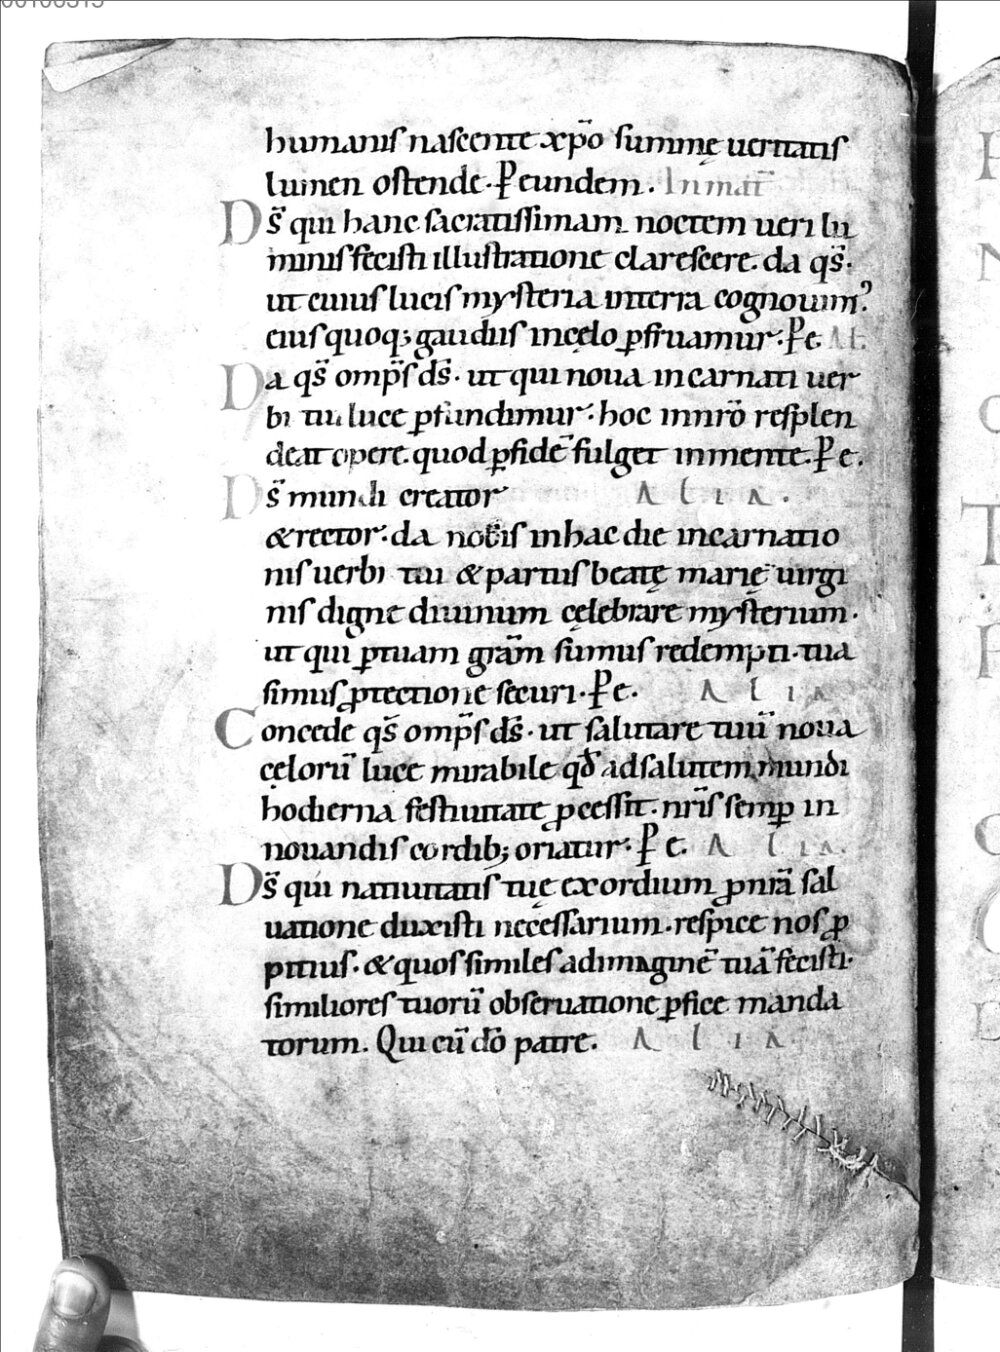 humanis nascente xp̄o summę ueritatis
lumen ostende· ꝑ eundem. In mat̄
Ds̄ qui hanc sacratissimam noctem ueri lu
minis fecisti illustratione clarescere· da qs̄·
ut cuius lucis mysteria in terra cognouim᷒
eius quoq; gaudiis in cęlo ꝑfruamur· ꝑ e Al.
Da qs̄ omp̄s ds̄· ut qui noua incarnati uer
bi tui luce ꝑfundimur· hoc in nr̄o resplen
deat opere· quod ꝑ fidē fulget in mente· ꝑ e.
Ds̄ mundi creator Alia.
& rector· da nobis in hac die incarnatio
nis uerbi tui & partus beatę marię uirgi
nis digne diuinum cęlebrare mysterium·
ut qui ꝑ tuam grām sumus redempti· tua
simus ꝓtectione securi· ꝑ e. Alia
Concede qs̄ omp̄s ds̄· ut salutare tuū noua
cęlorū luce mirabile qđ ad salutem mundi
hodierna festiuitate ꝓcessit· nr̄is semꝑ in
nouandis cordib; oriatur· ꝑ e. Alia.
Ds̄ qui natiuitatis tuę exordium ꝓ nrā sal
uatione duxisti necessarium· respice nos ꝓ
pitius· & quos similes ad imaginē tuā fecisti·
similiores tuorū obseruatione ꝑfice manda
torum. Qui cū dō patre. Alia.